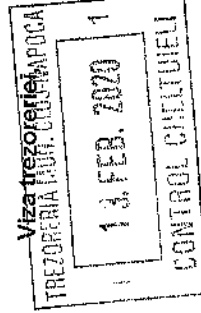 Viza trezoreriei
TREZORERIA MUN. CLUJ-NAPOCA
1
FEB. 2020
CONTROL CHELTUIELI